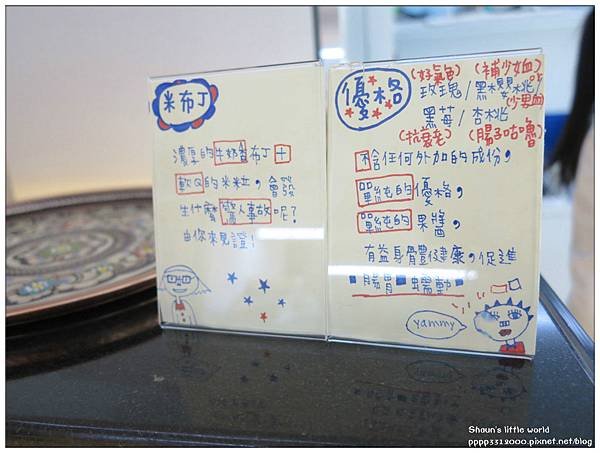 米布丁
濃厚的牛奶香布丁+
軟Q的米粒,會發
生什麼驚人事故呢?
由你來見證!
優格
(好氣色) (補少女血)
玫瑰/黑櫻桃/
少男血)
黑莓/杏桃
(抗衰老) (腸子咕嚕)
捨任何外加的成份,
單純的優格,
單純的果醬,
有益身體健康,促進
"腸胃"蠕動"
yammy
Shaun's little world
pppp3312000.pixnet.net/blog